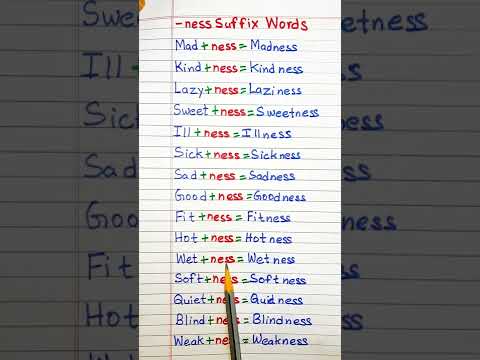 -ness Suffix Words
Mad+ness=Madness
Kind+ness=Kindness
Lazy+ness=Laziness
Sweet+ness=Sweetness
Ill+ness=Illness
Sick+ness=Sickness
Sad+ness=Sadness
Good+ness=Goodness
Fit+ness=Fitness
Hot+ness=Hotness
Wet+ness=Wetness
Soft+ness=Softness
Quiet+ness=Quidness
Blind+ness=Blindness
Weak+ness=Weakness